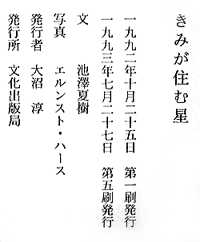 きみが住む星
一九九二年十月二十五日　第一刷発行
一九九三年七月二十七日　第五刷発行
文　　池澤夏樹
写真　エルンスト・ハース
発行者　大沼　淳
発行所　文化出版局